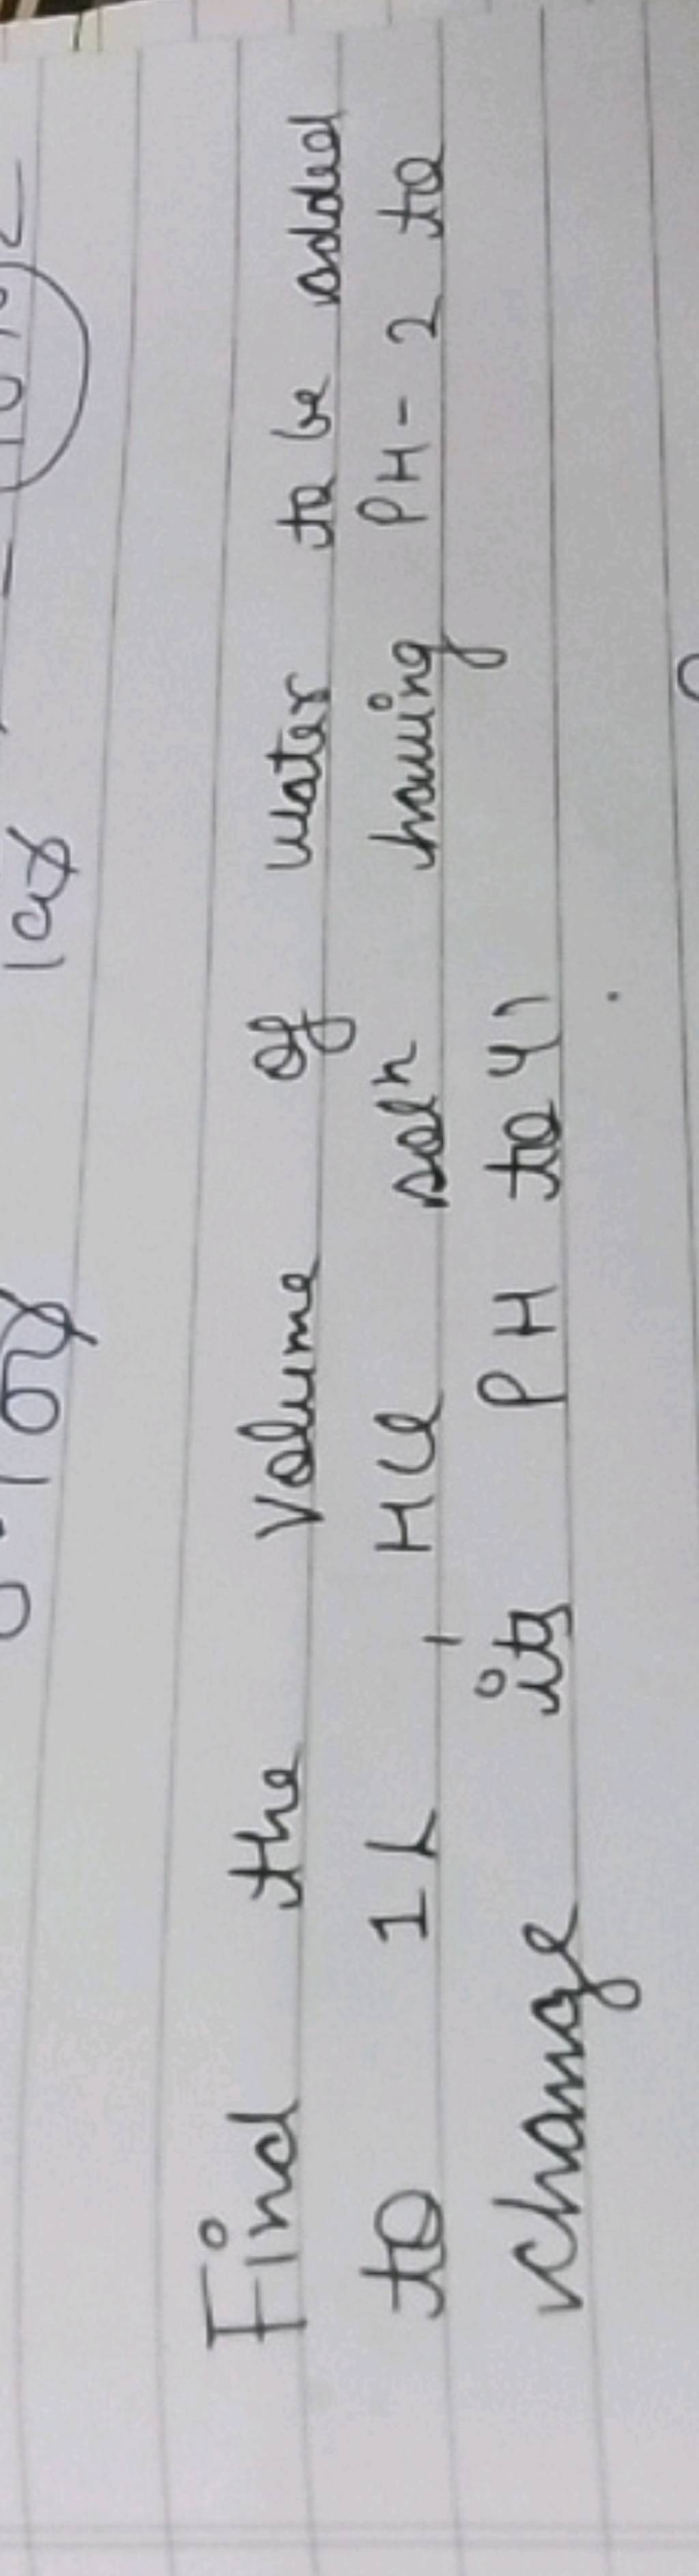 Find the Volume of water to be added
to 1L, HCl solⁿ having PH-2 to
change its PH to 4,